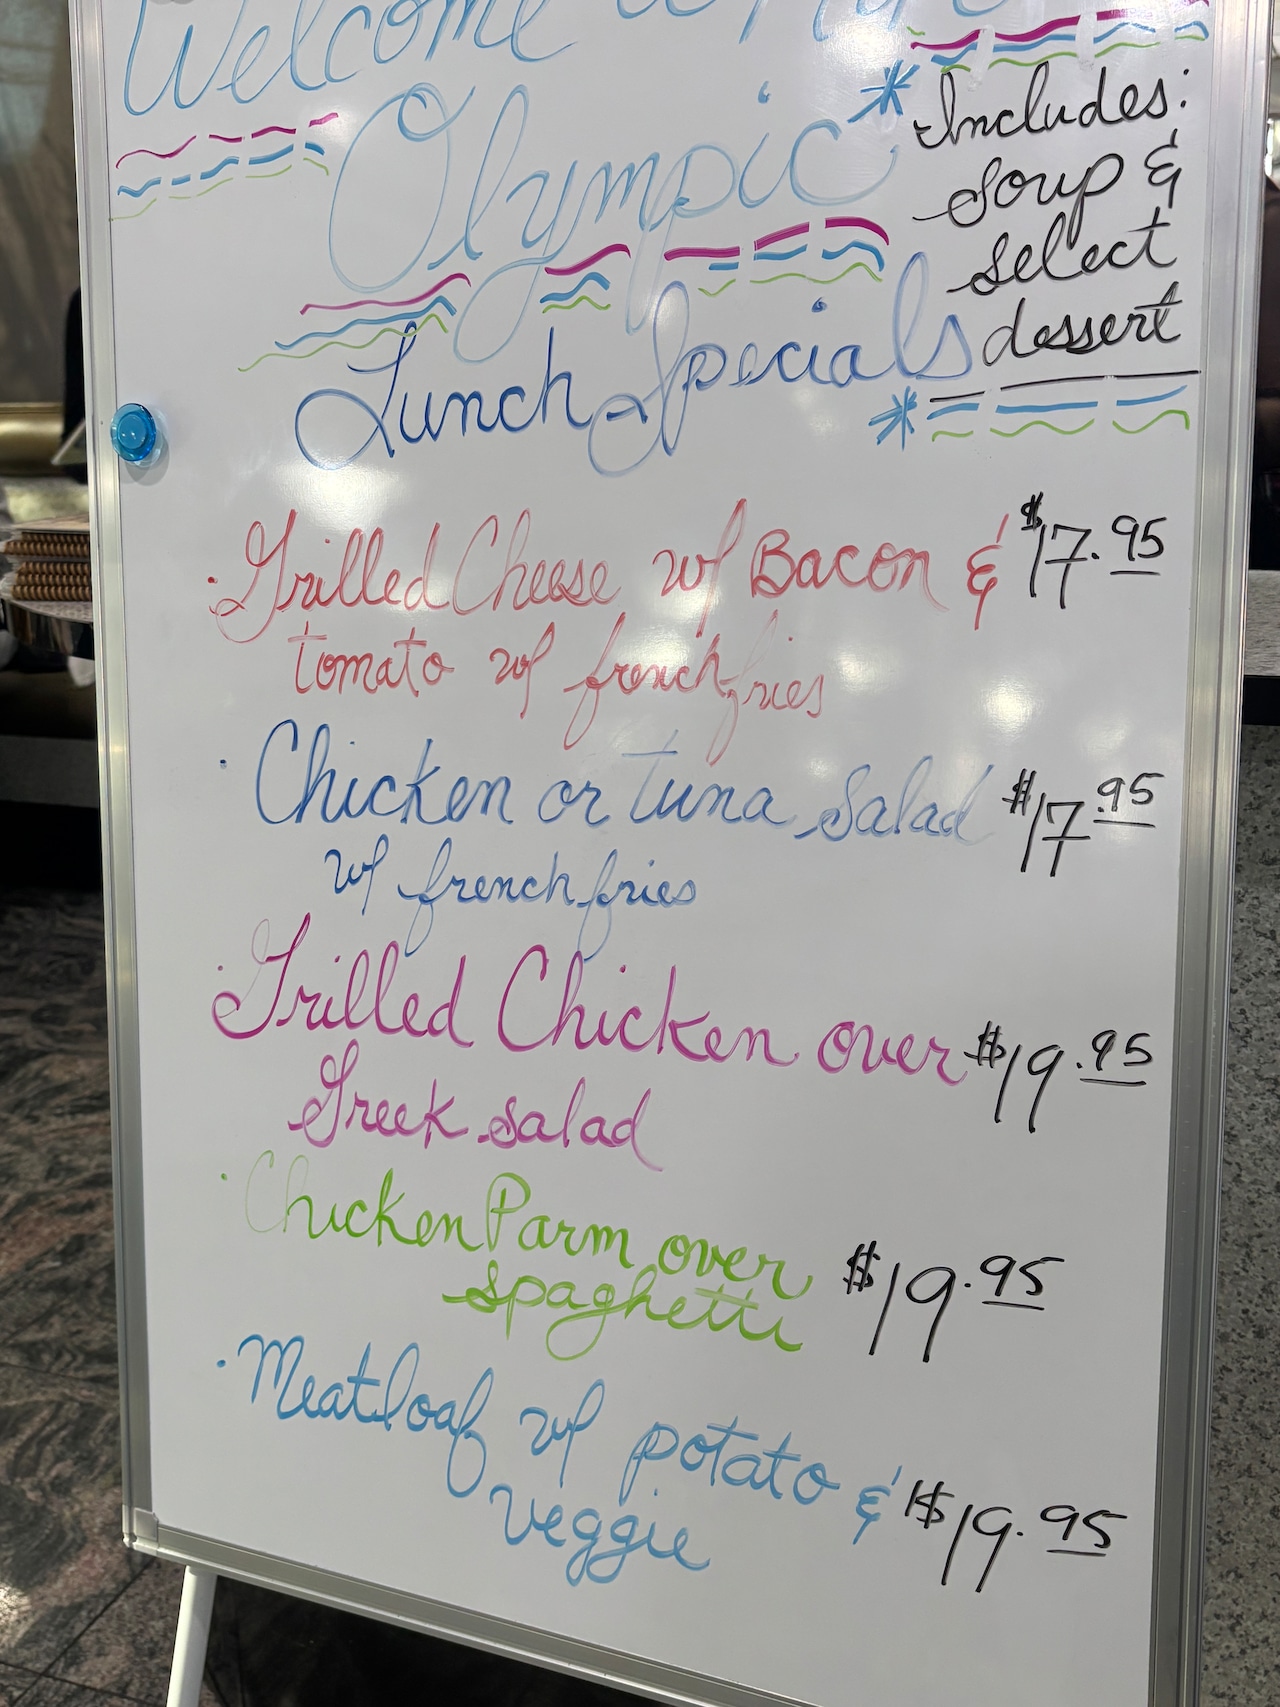 Welcome to
Olympic
Lunch Specials
* Includes:
Soup &
select
dessert
*
· Grilled Cheese w/ Bacon & $17.95
tomato w/ french fries
· Chicken or tuna salad $17.95
w/ french fries
· Grilled Chicken over $19.95
Greek salad
· Chicken Parm over $19.95
spaghetti
· Meatloaf w/ potato & $19.95
veggie